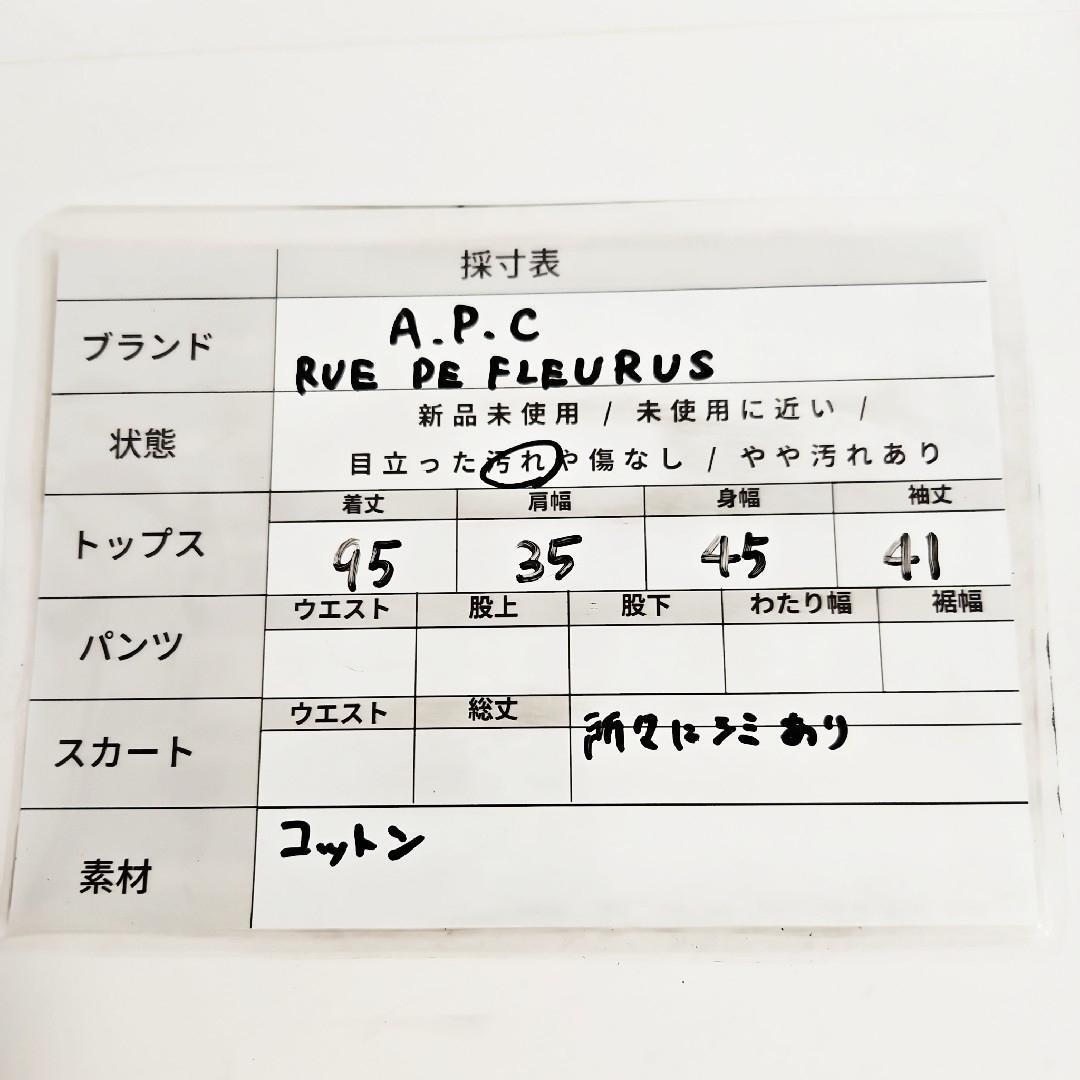 採寸表
ブランド
A.P.C
RUE DE FLEURUS
状態
新品未使用 / 未使用に近い /
目立った汚れや傷なし / やや汚れあり
トップス
着丈 肩幅 身幅 袖丈
95 35 45 41
パンツ
ウエスト 股上 股下 わたり幅 裾幅
スカート
ウエスト 総丈
所々にシミあり
素材
コットン